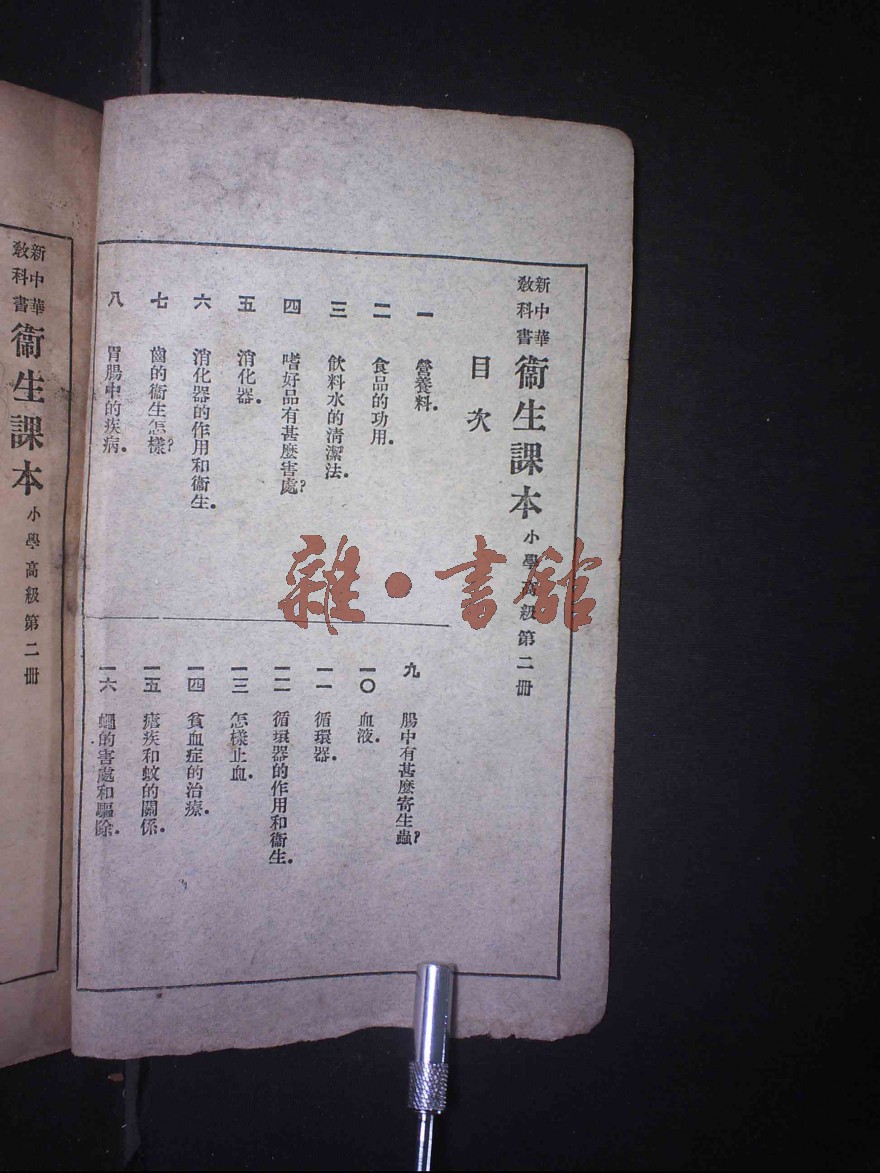 新中華
教科書
衞生課本
小學高級第二冊
目次
一 營養料.
二 食品的功用.
三 飲料水的清潔法.
四 嗜好品有甚麼害處?
五 消化器.
六 消化器的作用和衞生.
七 齒的衞生怎樣?
八 胃腸中的疾病.
九 腸中有甚麼寄生蟲?
一〇 血液.
一一 循環器.
一二 循環器的作用和衞生.
一三 怎樣止血.
一四 貧血症的治療.
一五 瘧疾和蚊的關係.
一六 蠅的害處和驅除.
新中華
教科書
衞生課本
小學高級第二冊
雜·書館